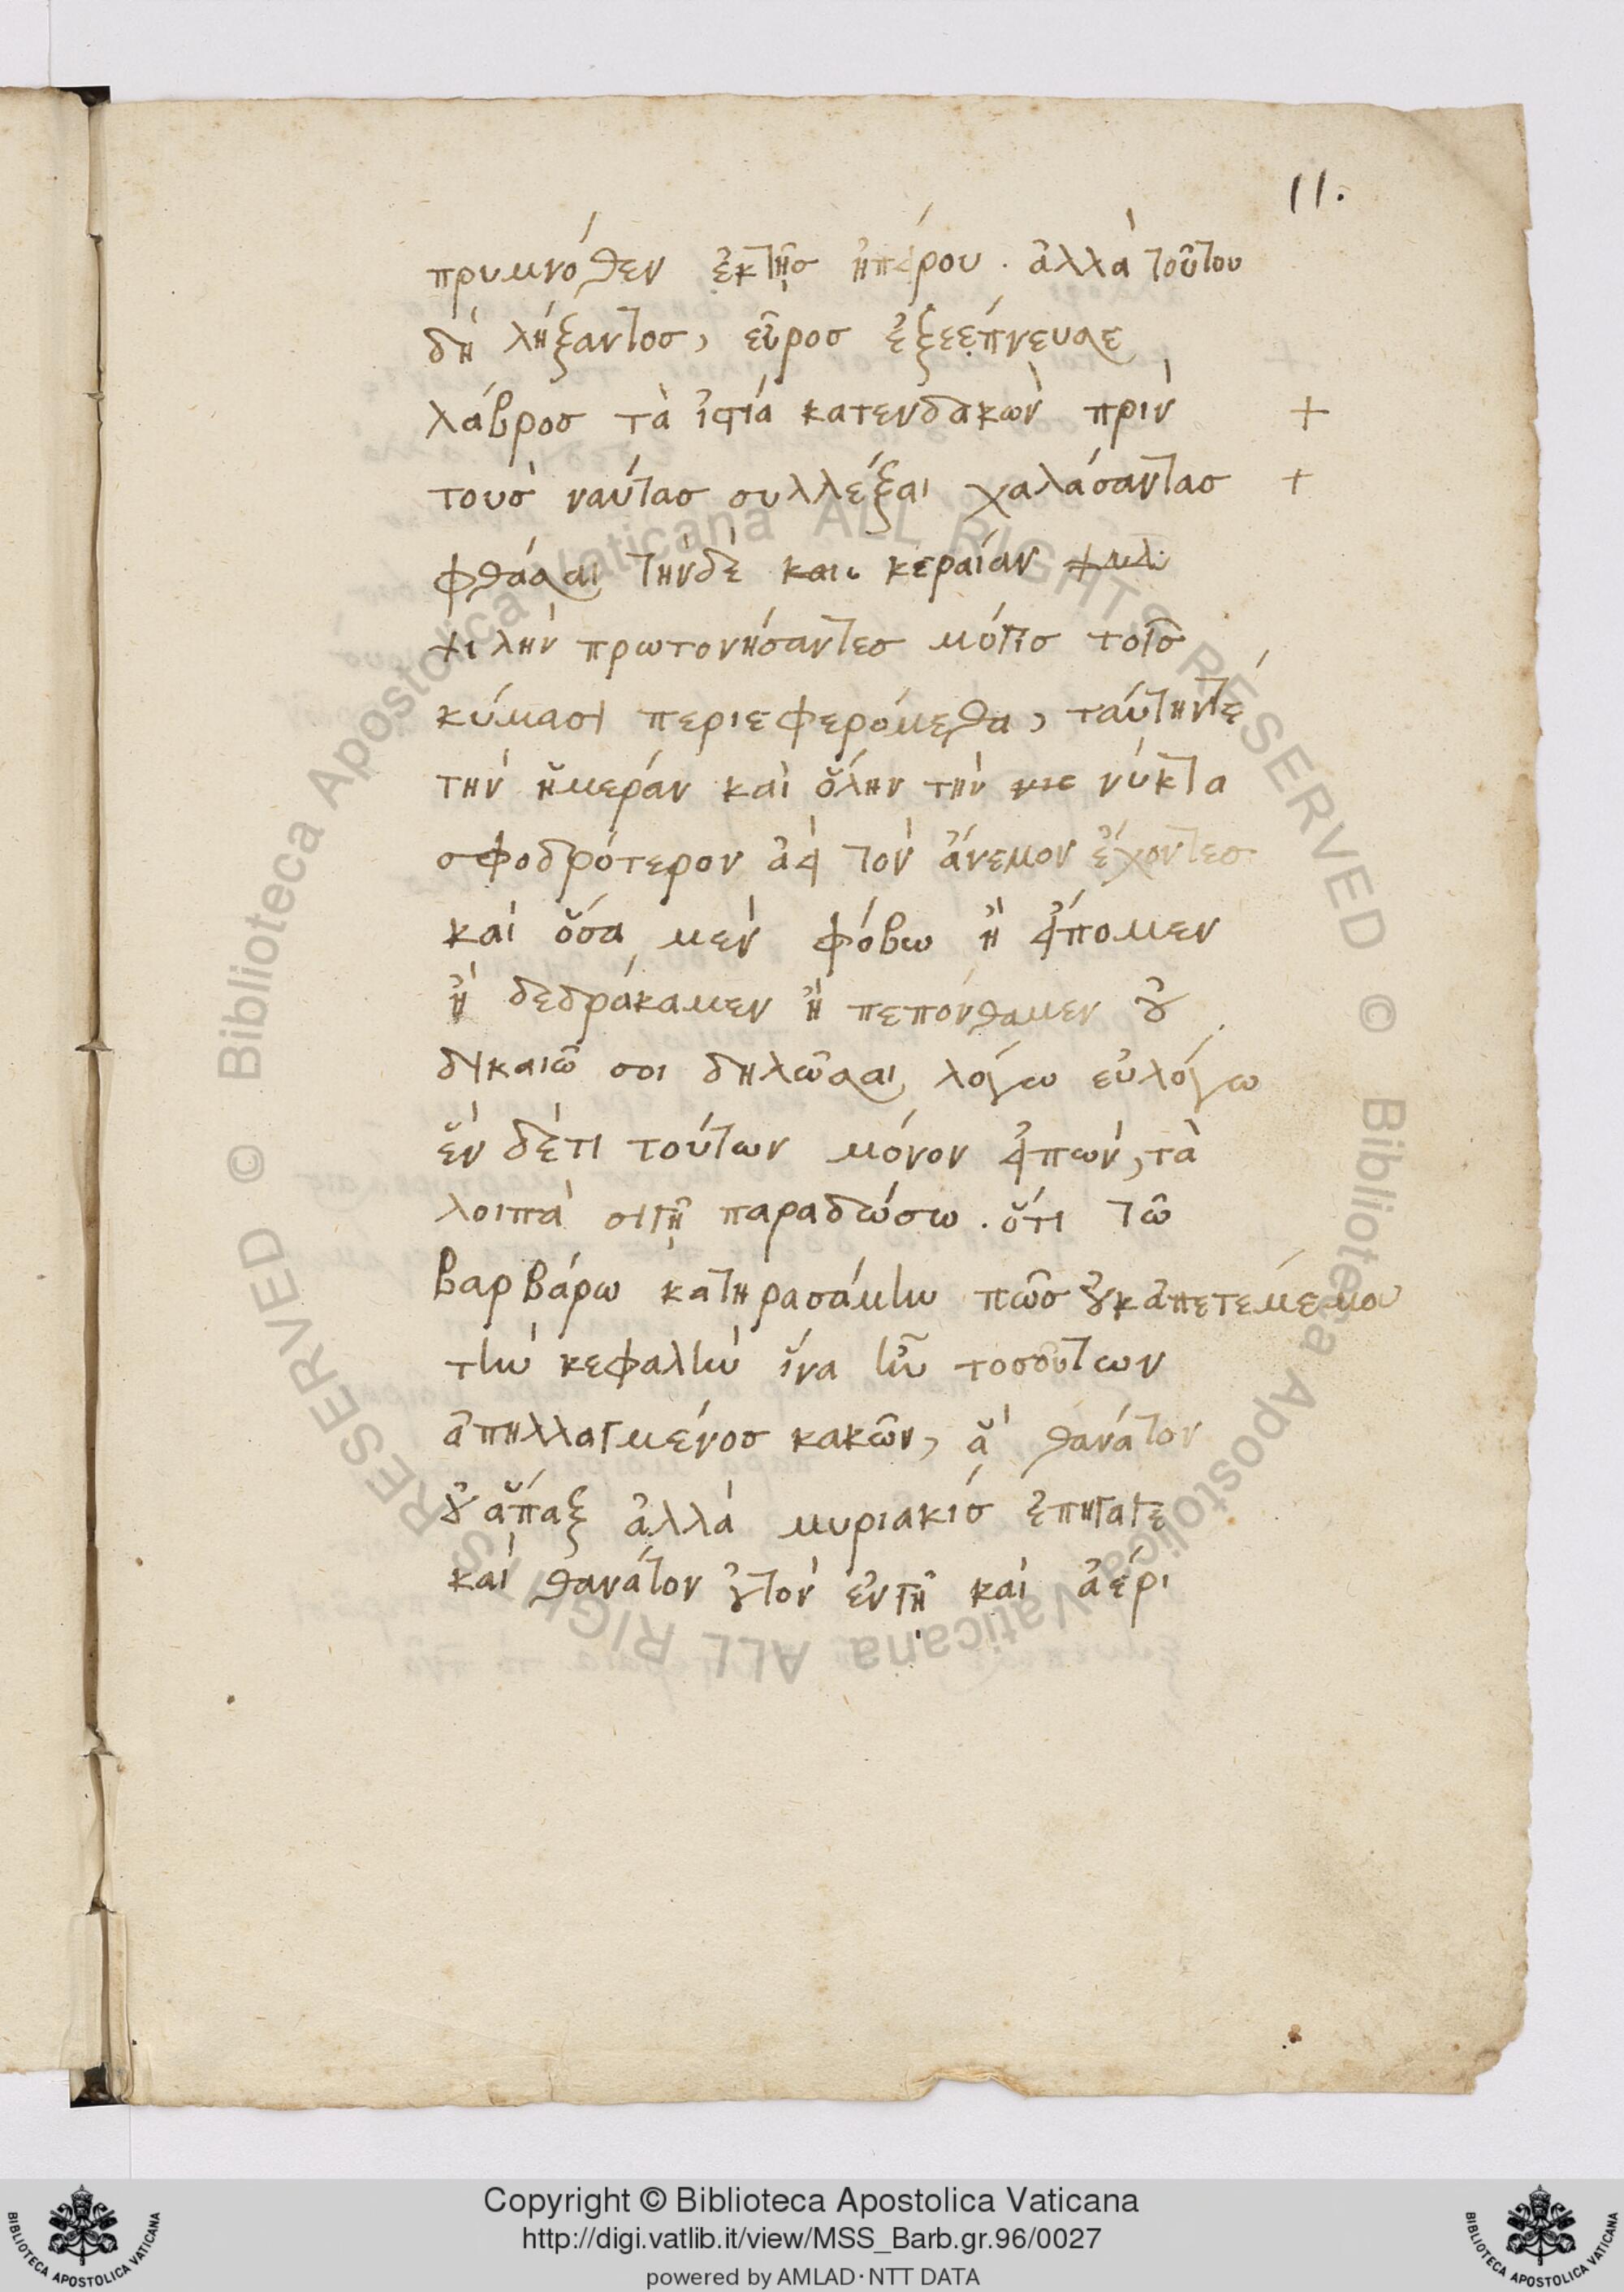 11.
πρυμνόθεν ἐκτῆς ἠπείρου . ἀλλὰ τοῦτου
δὴ λήξαντος, εὖρος ἐξεέπνευσε
λάβρος τὰ ἱστία κατενδακὼν πρὶν +
τοὺς ναύτας συλλέξαι χαλάσαντας +
φθάσαι τήνδὲ και κεραίαν
ψιλὴν πρωτονήσαντες μόγις τοῖς
κύμασι περιεφερόμεθα, ταύτηντέ
τὴν ἡμεράν καὶ ὅλην τὴν νύκτα
σφοδρότερον ἀεὶ τὸν ἄνεμον ἔχοντες
καὶ ὅσα μὲν φόβω ἢ εἴπομεν
ἢ δεδράκαμεν ἢ πεπόνθαμεν οὐ
δικαιῶ σοι δηλῶσαι λόγω εὐλόγω
ἕν δέτι τούτων μόνον εἰπὼν, τὰ
λοιπὰ σιγῇ παραδώσω . ὅτι τῶ
βαρβάρω κατηρασάμην πῶς οὐκἀπετέμέ μου
τὴν κεφαλὴν ἵνα ἦν τοσούτων
ἀπηλλαγμένος κακῶν, ἃ θανάτον
οὐ ἅπαξ ἀλλὰ μυριακίς ἐπήγαγε
καὶ θανάτον οὐτὸν ἐνγῇ καὶ ἀέρι
Copyright © Biblioteca Apostolica Vaticana
http://digi.vatlib.it/view/MSS_Barb.gr.96/0027
powered by AMLAD·NTT DATA
BIBLIOTECA APOSTOLICA VATICANA
BIBLIOTECA APOSTOLICA VATICANA
© Biblioteca Apostolica Vaticana ALL RIGHTS RESERVED
© Biblioteca Apostolica Vaticana ALL RIGHTS RESERVED